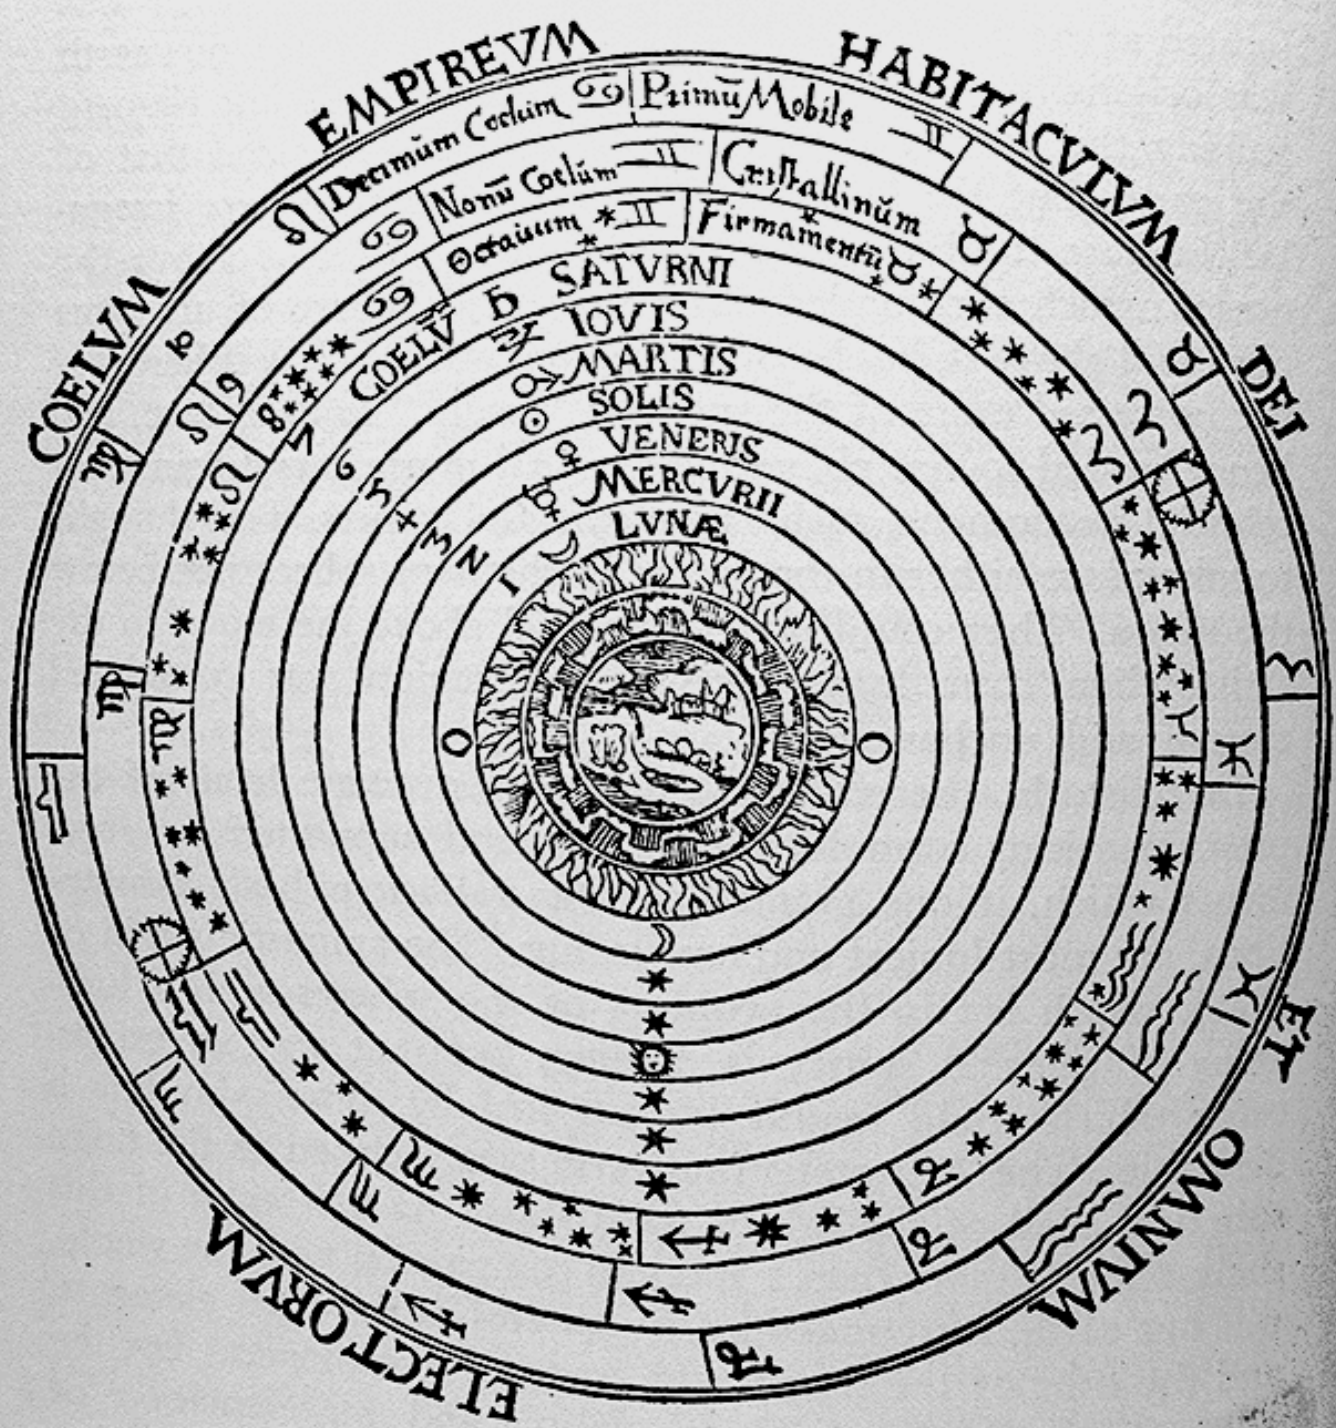 COELVM EMPIREVM HABITACVLVM DEI ET OMNIVM ELECTORVM
Decimūm Coelum ♋ Primū Mobile ♊
Nonū Coelūm ♊ Cristallinūm ♉
Octauum ♊ Firmamentū ♉
COELV̄ ♄ SATVRNI
♃ IOVIS
♂ MARTIS
☉ SOLIS
♀ VENERIS
☿ MERCVRII
☽ LVNÆ
9
8
7
6
5
4
3
2
1